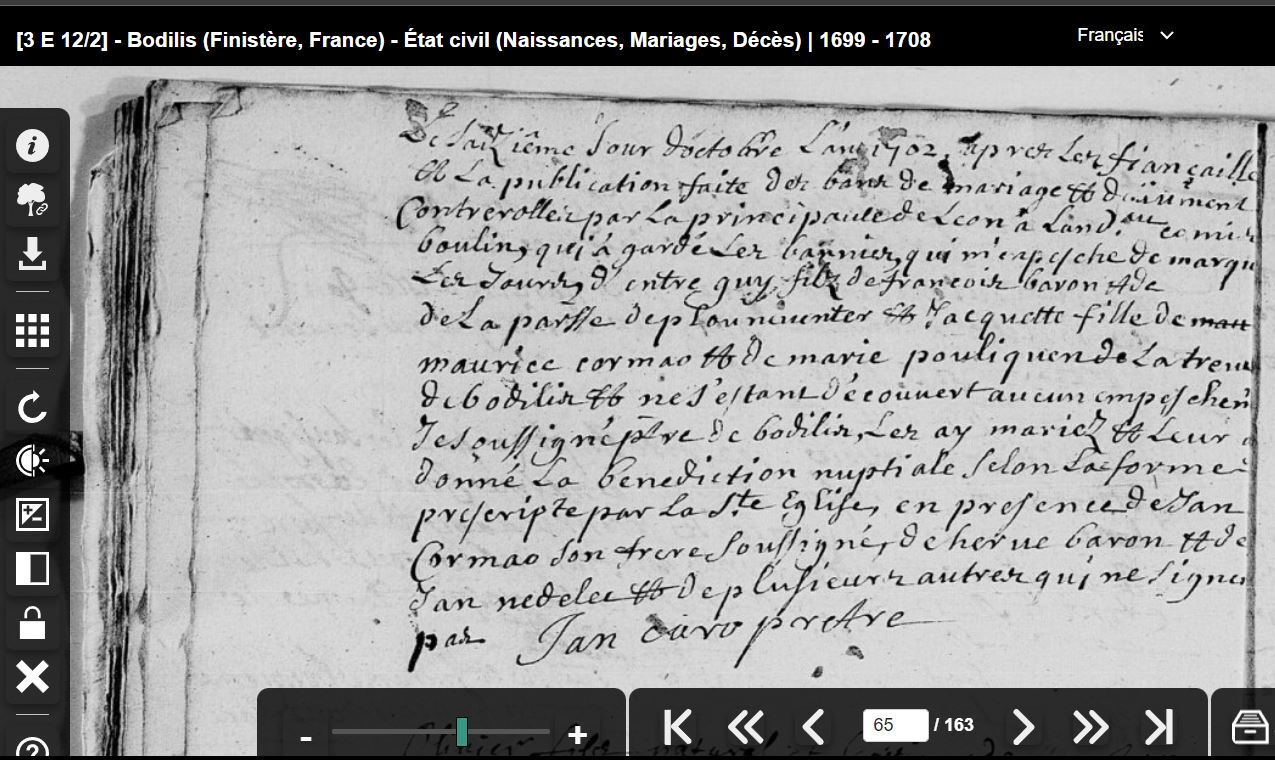 [3 E 12/2] - Bodilis (Finistère, France) - État civil (Naissances, Mariages, Décès) | 1699 - 1708
Français
Le saiziême Jour doctobre Lan 1702, apres Les fiançaille
et La publication faite des bans de mariage et
Controrolles par La principauté de Leon a Land.au
boulin, qui a gardé Les bannies, qui m'enpesche de marqu
Les Jours, d'entre guy, filz de francois baron et de
de La parsse de plouneventer et Jacquette fille de
maurice cormao et de marie pouliquen de La treve
de bodilis et ne s'estant découvert aucun empeschem
Je soussigné ptre de bodilis, Les ay mariez et Leur
donné La benediction nuptiale selon La forme
prescripte par La Ste Eglise, en presence de Jan
Cormao son frere soussigné, de herve baron et de
Jan nedelec et de plusieurs autres qui ne signe
pas Jan prestre
- +
65 / 163